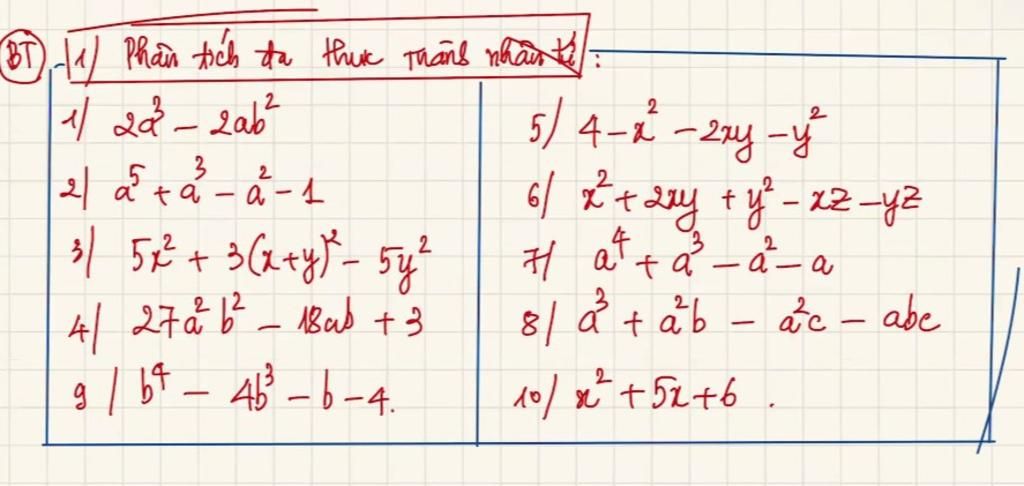 BT 1) Phân tích đa thức thành nhân tử :
1/ 2a³ - 2ab²
2/ a⁵ + a³ - a² - 1
3/ 5x² + 3(x+y)² - 5y²
4/ 27a²b² - 18ab + 3
9/ b⁴ - 4b³ - b - 4.
5/ 4 - x² - 2xy - y²
6/ x² + 2xy + y² - xz - yz
7/ a⁴ + a³ - a² - a
8/ a³ + a²b - a²c - abc
10/ x² + 5x + 6 .